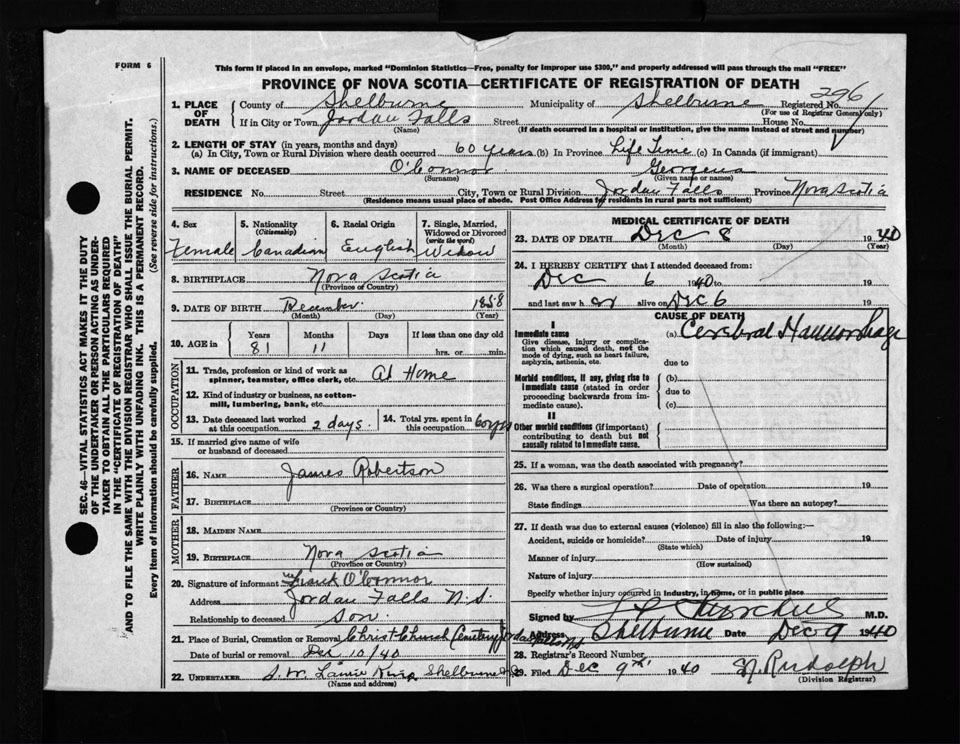 FORM 6
This form if placed in an envelope, marked "Dominion Statistics—Free, penalty for improper use $300," and properly addressed will pass through the mail "FREE"
PROVINCE OF NOVA SCOTIA—CERTIFICATE OF REGISTRATION OF DEATH
1. PLACE OF DEATH County of Shelburne Municipality of Shelburne Registered No. 296
(For use of Registrar General only)
If in City or Town Jordan Falls Street House No.
(Name) (If death occurred in a hospital or institution, give the name instead of street and number)
2. LENGTH OF STAY (in years, months and days)
(a) In City, Town or Rural Division where death occurred 60 years (b) In Province Life Time (c) In Canada (if immigrant)
3. NAME OF DECEASED O'Connor Georgena
(Surname) (Given name or names)
RESIDENCE No. Street City, Town or Rural Division Jordan Falls Province Nova Scotia
(Residence means usual place of abode. Post Office Address for residents in rural parts not sufficient)
4. Sex 5. Nationality (Citizenship) 6. Racial Origin 7. Single, Married, Widowed or Divorced (write the word)
Female Canadian English Widow
8. BIRTHPLACE Nova Scotia
(Province or Country)
9. DATE OF BIRTH December 1858
(Month) (Day) (Year)
10. AGE in Years Months Days If less than one day old
81 11 hrs. or min.
OCCUPATION
11. Trade, profession or kind of work as spinner, teamster, office clerk, etc. At Home
12. Kind of industry or business, as cotton-mill, lumbering, bank, etc.
13. Date deceased last worked at this occupation 2 days. 14. Total yrs. spent in this occupation 60 yrs
15. If married give name of wife or husband of deceased
FATHER
16. Name James Robertson
17. Birthplace
(Province or Country)
MOTHER
18. Maiden Name
19. Birthplace Nova Scotia
(Province or Country)
20. Signature of informant Frank O'Connor
Address Jordan Falls N.S.
Relationship to deceased Son.
21. Place of Burial, Cremation or Removal Christ Church Cemetery Jordan Falls
Date of burial or removal Dec 10/40
22. Undertaker Shelburne N.S.
(Name and address)
MEDICAL CERTIFICATE OF DEATH
23. DATE OF DEATH Dec 8 1940
(Month) (Day) (Year)
24. I HEREBY CERTIFY that I attended deceased from:
Dec 6 1940 to 19
and last saw her alive on Dec 6 19
CAUSE OF DEATH
I
Immediate cause (a) Cerebral Haemorrhage
Give disease, injury or complication which caused death, not the mode of dying, such as heart failure, asphyxia, asthenia, etc.
due to
Morbid conditions, if any, giving rise to immediate cause (stated in order proceeding backwards from immediate cause).
(b)
due to
(c)
II
Other morbid conditions (if important) contributing to death but not causally related to immediate cause.
25. If a woman, was the death associated with pregnancy?
26. Was there a surgical operation? Date of operation 19
State findings Was there an autopsy?
27. If death was due to external causes (violence) fill in also the following:—
Accident, suicide or homicide? Date of injury 19
(State which)
Manner of injury
(How sustained)
Nature of injury
Specify whether injury occurred in industry, in home, or in public place
Signed by Churchill M.D.
Address Shelburne Date Dec 9 1940
28. Registrar's Record Number
29. Filed Dec 9th 1940 N. Rudolph
(Division Registrar)
SEC. 46—VITAL STATISTICS ACT MAKES IT THE DUTY
OF THE UNDERTAKER OR PERSON ACTING AS UNDER-
TAKER TO OBTAIN ALL THE PARTICULARS REQUIRED
IN THE "CERTIFICATE OF REGISTRATION OF DEATH"
AND TO FILE THE SAME WITH THE DIVISION REGISTRAR WHO SHALL ISSUE THE BURIAL PERMIT.
WRITE PLAINLY WITH UNFADING INK. THIS IS A PERMANENT RECORD.
Every item of information should be carefully supplied. (See reverse side for instructions.)